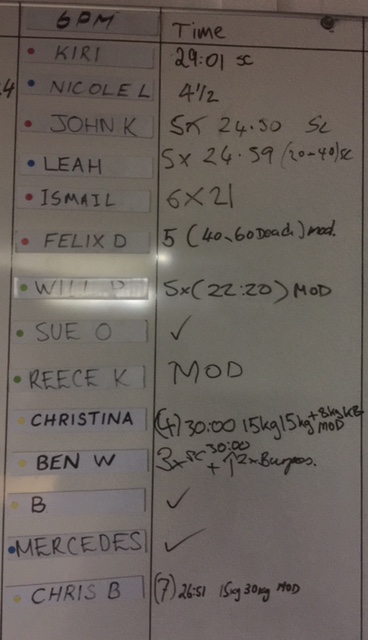 6PM Time
KIRI 29:01 SC
4 NICOLE L 4½
JOHN K 5x 24.50 SC
LEAH 5x 24.59 (20-40)SC
ISMAIL 6X21
FELIX D 5 (40,60Dead.) mod.
WILL P 5x(22:20) MOD
SUE O ✓
REECE K MOD
CHRISTINA (4) 30:00 15kg 15kg +8kg KB MOD
BEN W 3x SC 30:00
+ 12xBurpees.
B ✓
MERCEDES ✓
CHRIS B (7) 26:51 15kg 30kg MOD